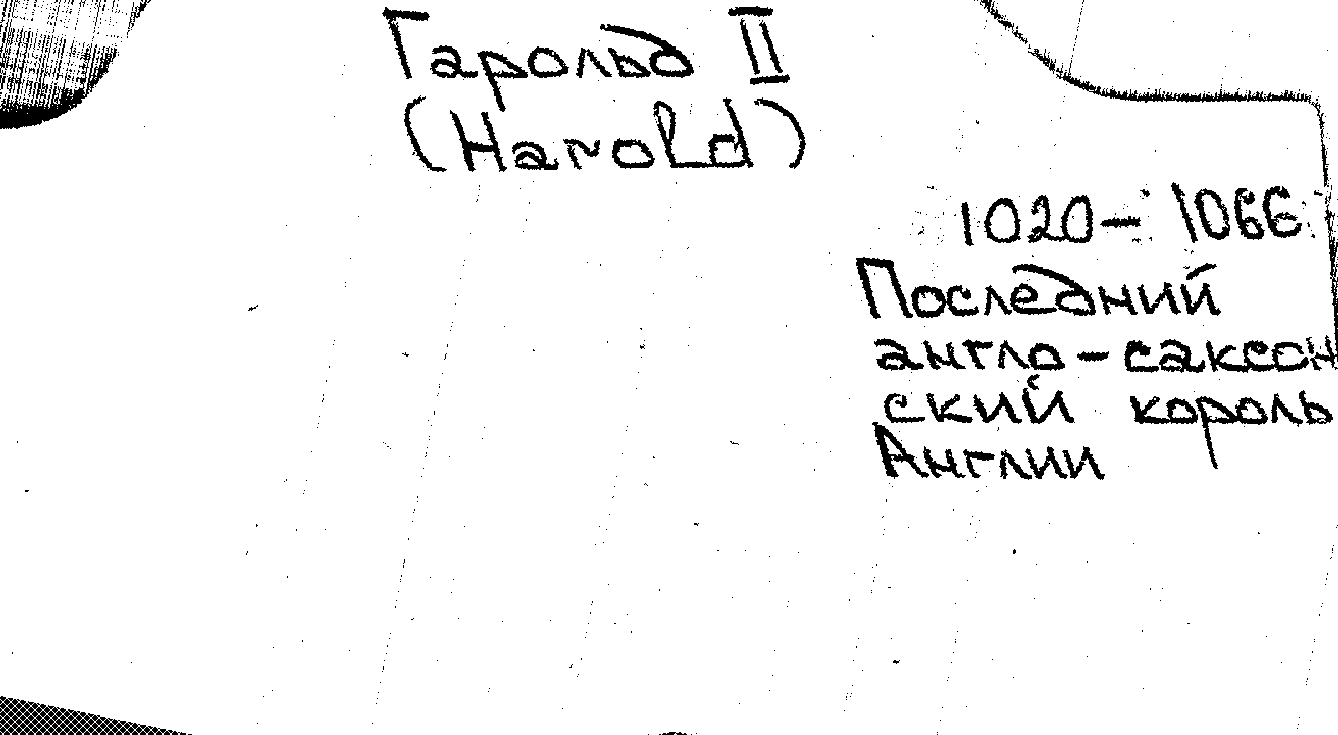 Гарольд II
(Harold)
1020-1066
Последний
англо-саксон
ский король
Англии